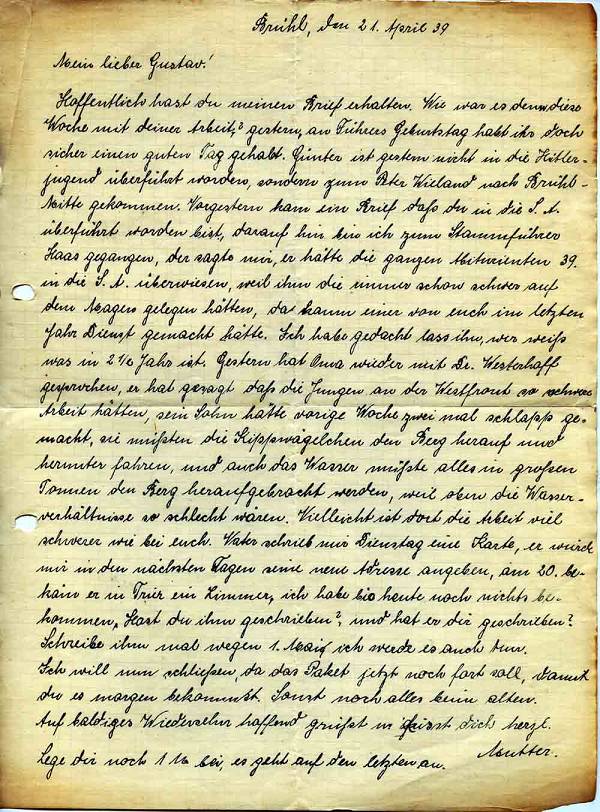 Brühl, den 21. April 39
Mein lieber Gustav!
Hoffentlich hast du meinen Brief erhalten. Wie war es denn diese
Woche mit deiner Arbeit,? gestern, an Führers Geburtstag habt ihr doch
sicher einen guten Tag gehabt. Günter ist gestern nicht in die Hitler-
jugend überführt worden, sondern zum Pater Wieland nach Brühl-
Mitte gekommen. Vorgestern kam ein Brief daß du in die S. A.
überführt worden bist, darauf hin bin ich zum Stammführer
Haas gegangen, der sagte mir, er hätte die ganzen Abiturienten 39.
in die S. A. überwiesen, weil ihm die immer schon schwer auf
dem Magen gelegen hätten, da kaum einer von euch im letzten
Jahr Dienst gemacht hätte. Ich habe gedacht lass ihn, wer weiß
was in 2½ Jahr ist. Gestern hat Oma wieder mit Dr. Westerhoff
gesprochen, er hat gesagt daß die Jungen an der Westfront so schwere
Arbeit hätten, sein Sohn hätte vorige Woche zwei mal schlapp ge-
macht, sie müßten die Kippwägelchen den Berg herauf und
herunter fahren, und auch das Wasser müßte alles in großen
Tonnen den Berg heraufgebracht werden, weil oben die Wasser-
verhältnisse so schlecht wären. Vielleicht ist dort die Arbeit viel
schwerer wie bei euch. Vater schrieb mir Dienstag eine Karte, er würde
mir in den nächsten Tagen seine neue Adresse angeben, am 20. be-
käm er in Trier ein Zimmer, ich habe bis heute noch nichts be-
kommen. Hast du ihm geschrieben?, und hat er dir geschrieben?
Schreibe ihm mal wegen 1. Mai, ich werde es auch tun.
Ich will nun schließen, da das Paket jetzt noch fort soll, damit
du es morgen bekommst. Sonst noch alles beim alten.
Auf baldiges Wiedersehn hoffend grüßt u. küsst dich herzl.
Mutter.
Lege dir noch 1 M bei, es geht auf den letzten an.